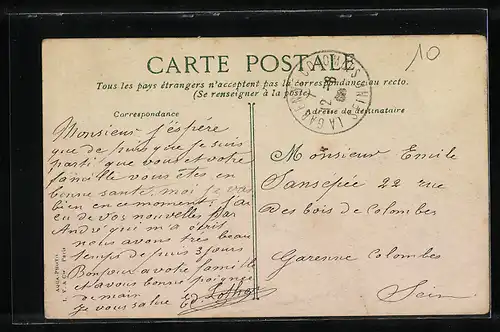 10
CARTE POSTALE
Tous les pays étrangers n'acceptent pas la correspondance au recto.
(Se renseigner à la poste)
Correspondance
Adresse du destinataire
LA GARENNE-COLOMBES
Monsieur j'éspére
que de puis que je suis
parti que vous et votre
famille vous êtes en
bonne santé, moi je vas
bien en ce moment, j'ai
eu de vos nouvelles par
André qui m'a écrit
nous avons très beau
temps de puis 3 jours
Bonjour a votre famille
et a vous bonne poignée
de main
Je vous salue Ed
Monsieur Emile
Sansépée 22 rue
des bois de Colombes
Garenne Colombes
Sein
AQUA-PHOTO.
L. V. & Cie. Paris